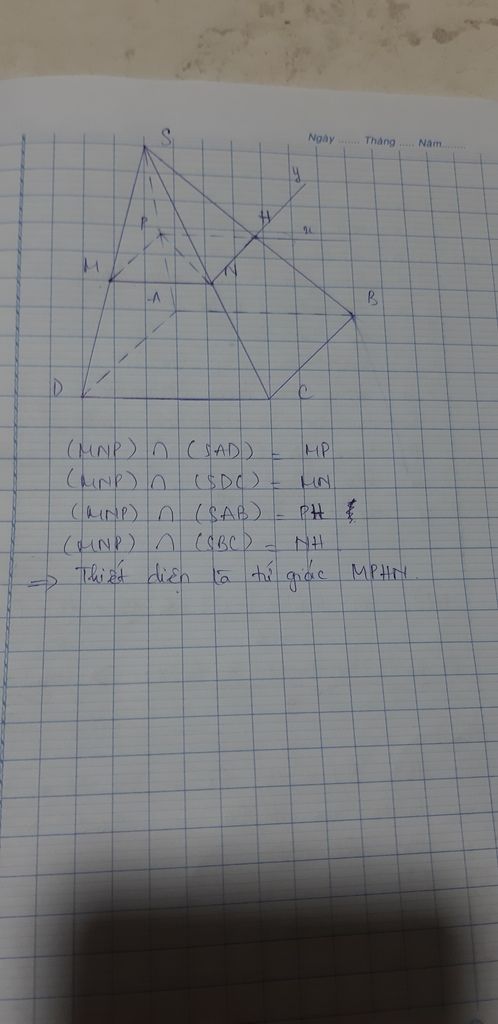 Ngày ....... Tháng ..... Năm........
S
y
P
H
x
M
N
A
B
D
C
(MNP) ∩ (SAD) = MP
(MNP) ∩ (SDC) = MN
(MNP) ∩ (SAB) = PH
(MNP) ∩ (SBC) = NH
=> Thiết diện là tứ giác MPHN.